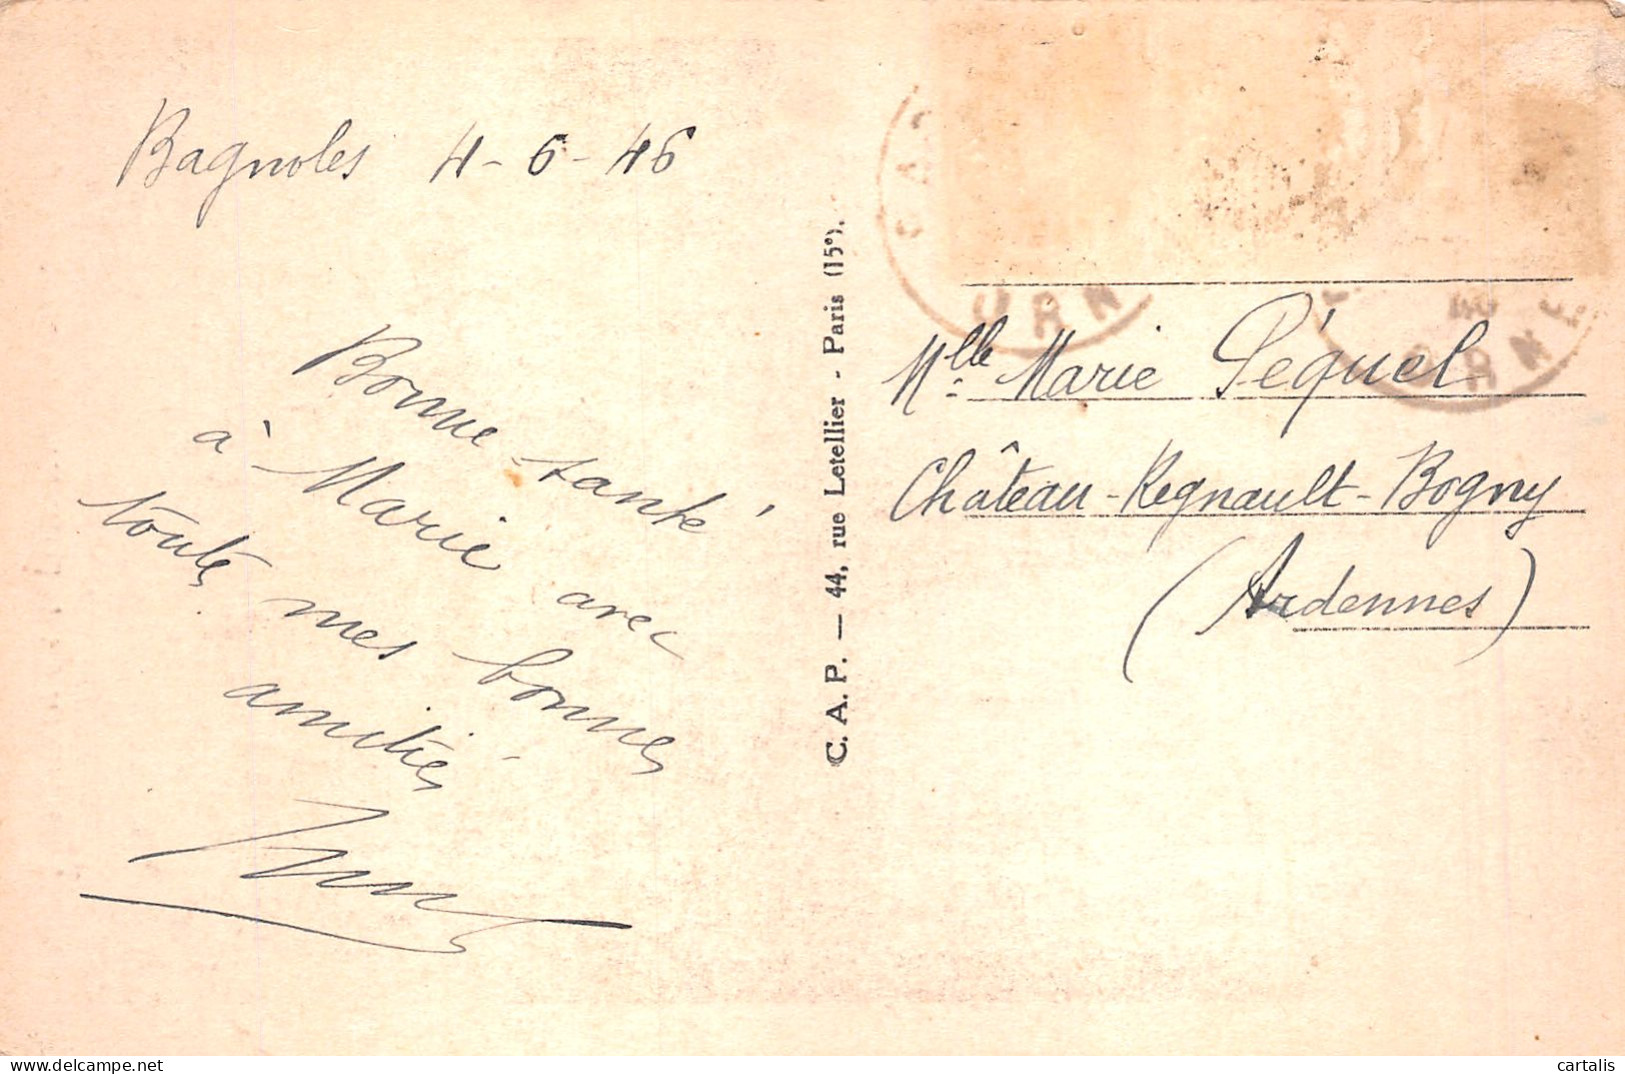 Bagnoles 4-6-46
Bonne santé
à Marie avec
toutes mes bonnes
amitiés
C. A. P. — 44, rue Letellier - Paris (15e).
ORNE
Mlle Marie Péquel
Château-Regnault-Bogny
(Ardennes)
cartalis